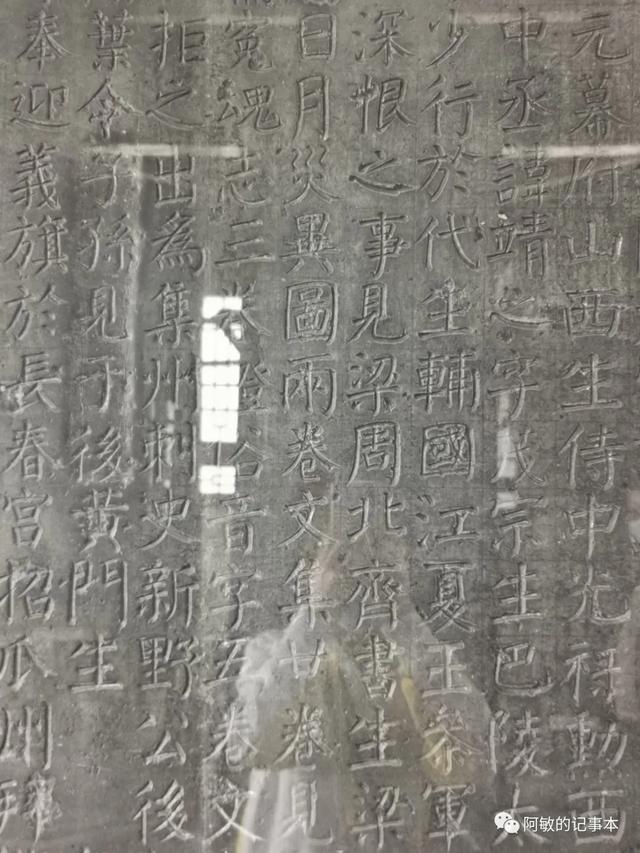 元幕府山西生侍中光祿勳西
中丞諱靖之字茂宗生巴陵太
少行於代生輔國江夏王參軍
深恨之事見梁周北齊書生梁
日月災異圖兩卷文集廿卷見
冤魂志三卷證俗音字五卷文
拒之出為集州刺史新野公後
葉令子孫見于後黃門生
奉迎義旗於長春宮招瓜州拜
阿敏的记事本